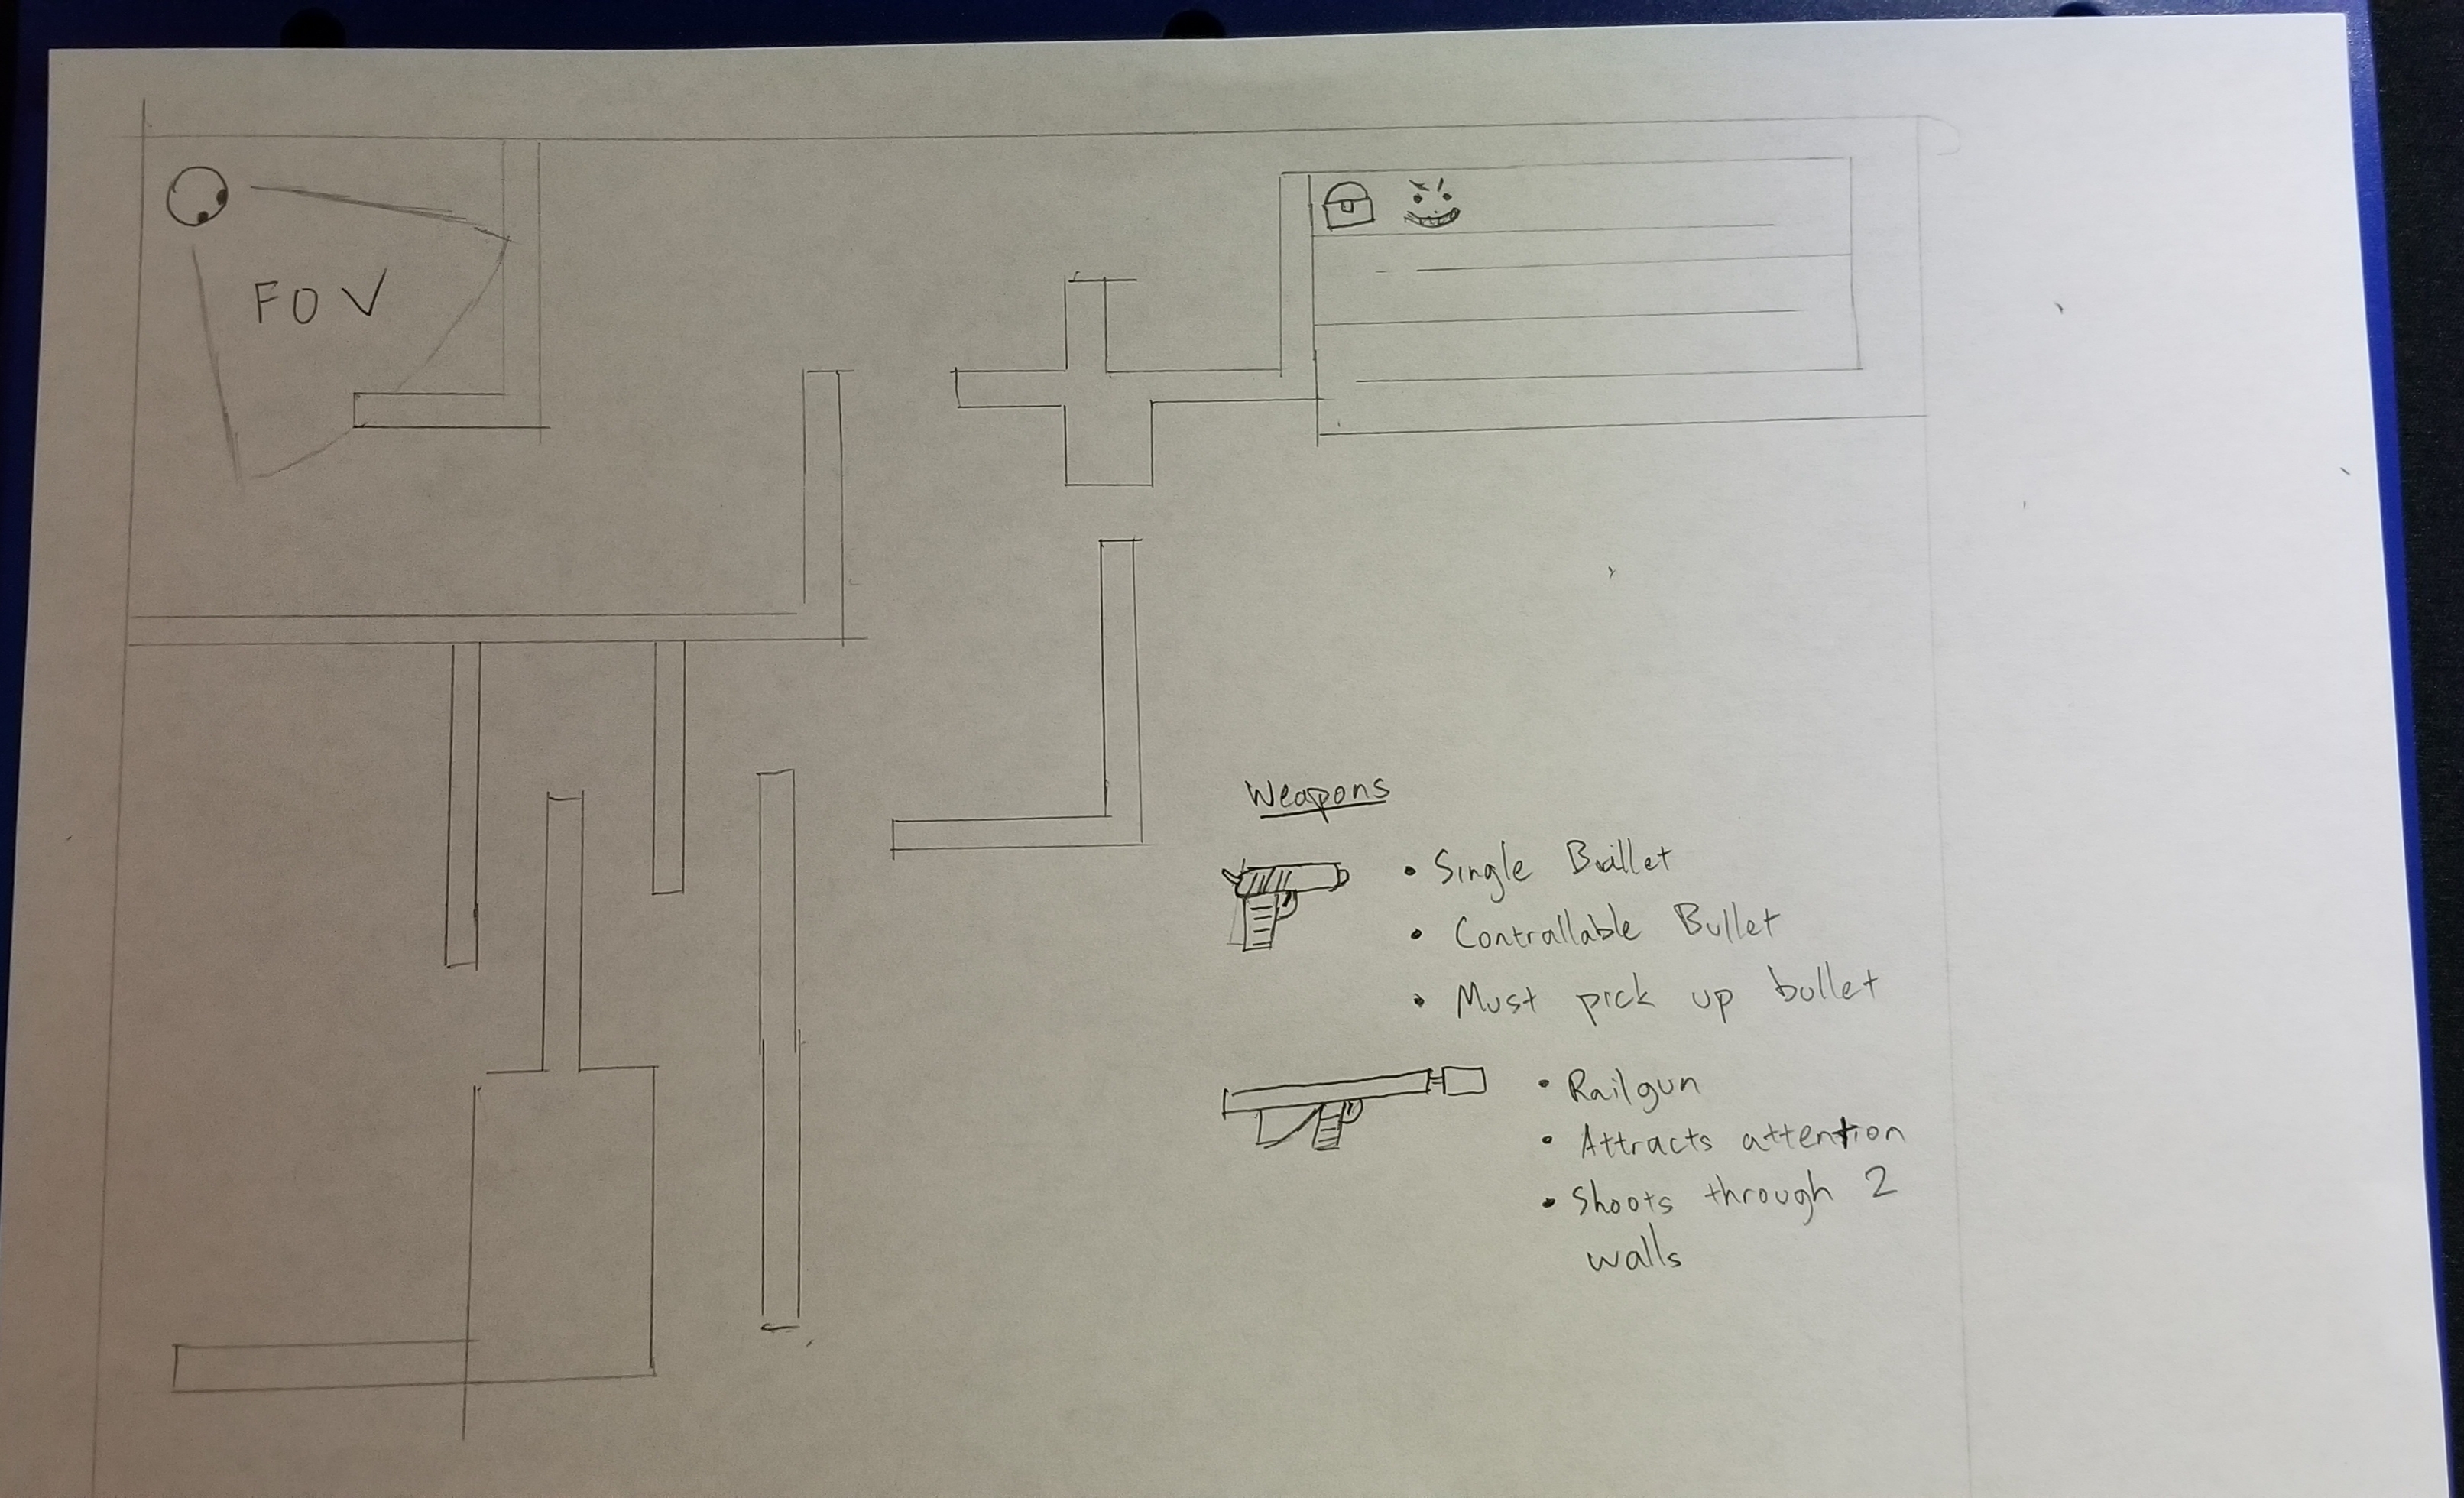 FOV
Weapons
• Single Bullet
• Controllable Bullet
• Must pick up bullet
• Railgun
• Attracts attention
• Shoots through 2
walls